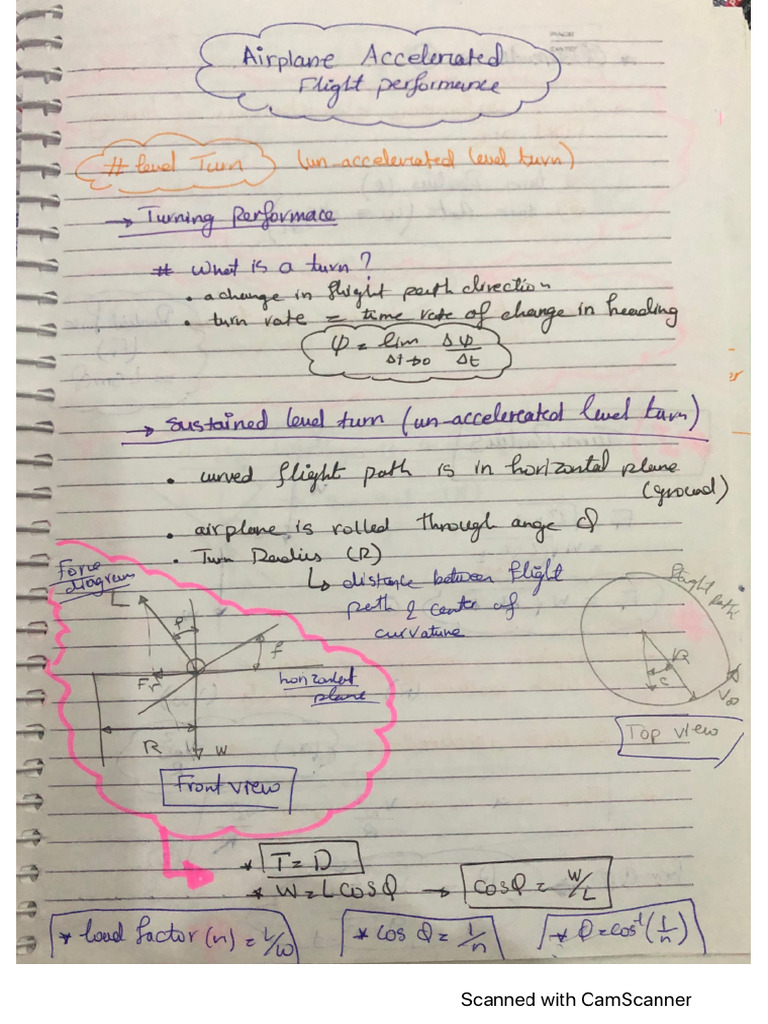 Airplane Accelerated
Flight performance
# level Turn (un-accelerated level turn)
→ Turning Performace
# What is a turn?
• a change in flight path direction
• turn rate = time rate of change in heading
ψ = lim Δψ/Δt
Δt→0
→ Sustained level turn (un-accelerated level turn)
• curved flight path is in horizontal plane
(ground)
• airplane is rolled through ange φ
• Turn Radius (R)
↳ distance between flight
path & center of
curvature
Force
diagram
L
φ
Fr
horizontal
plane
R
W
Front view
flight path
R
C
V∞
Top view
* T = D
* W = L cos φ → cos φ = W/L
* load factor (n) = L/W
* cos φ = 1/n
* φ = cos⁻¹(1/n)
Scanned with CamScanner